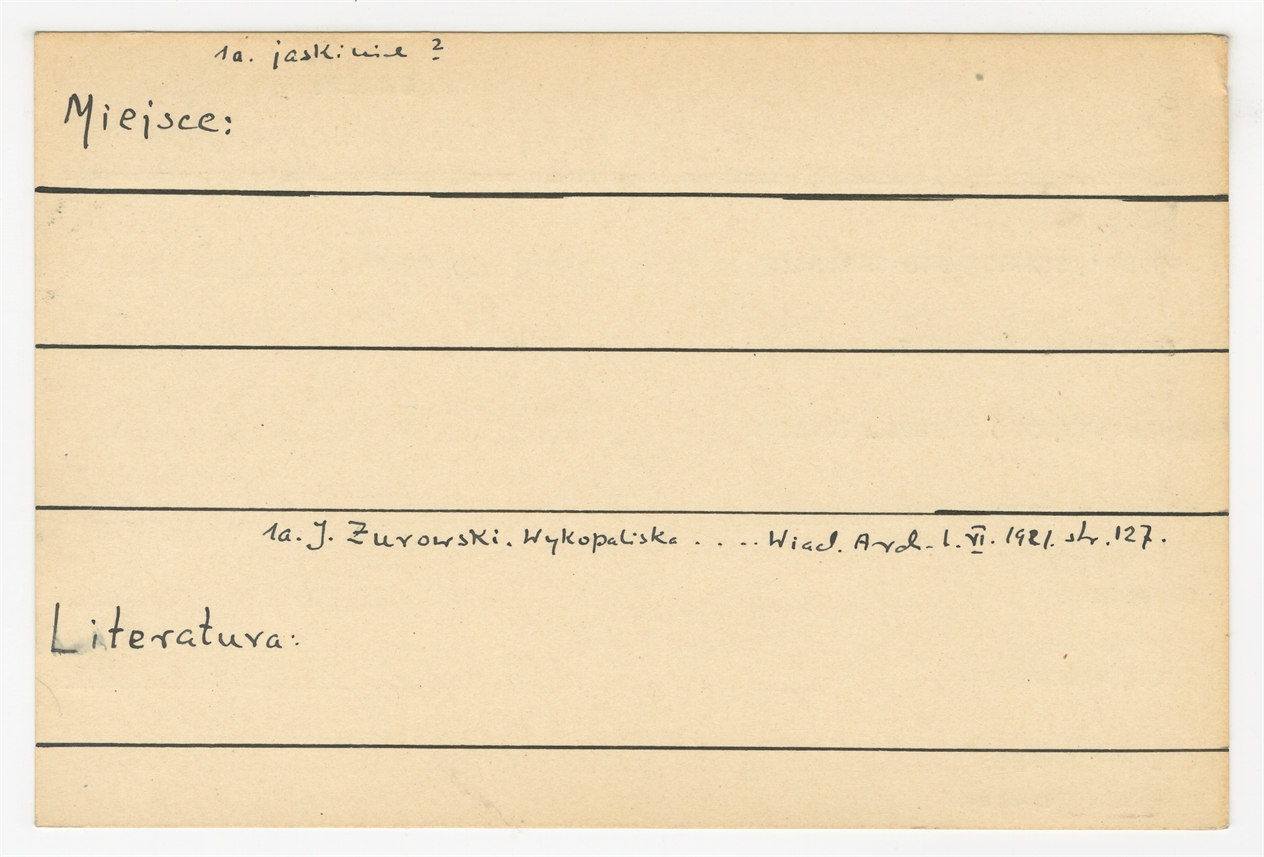 1a. jaskinie ?
Miejsce:
1a. J. Żurowski. Wykopaliska . . . . Wiad. Arch. t. VI. 1921. str. 127.
Literatura: